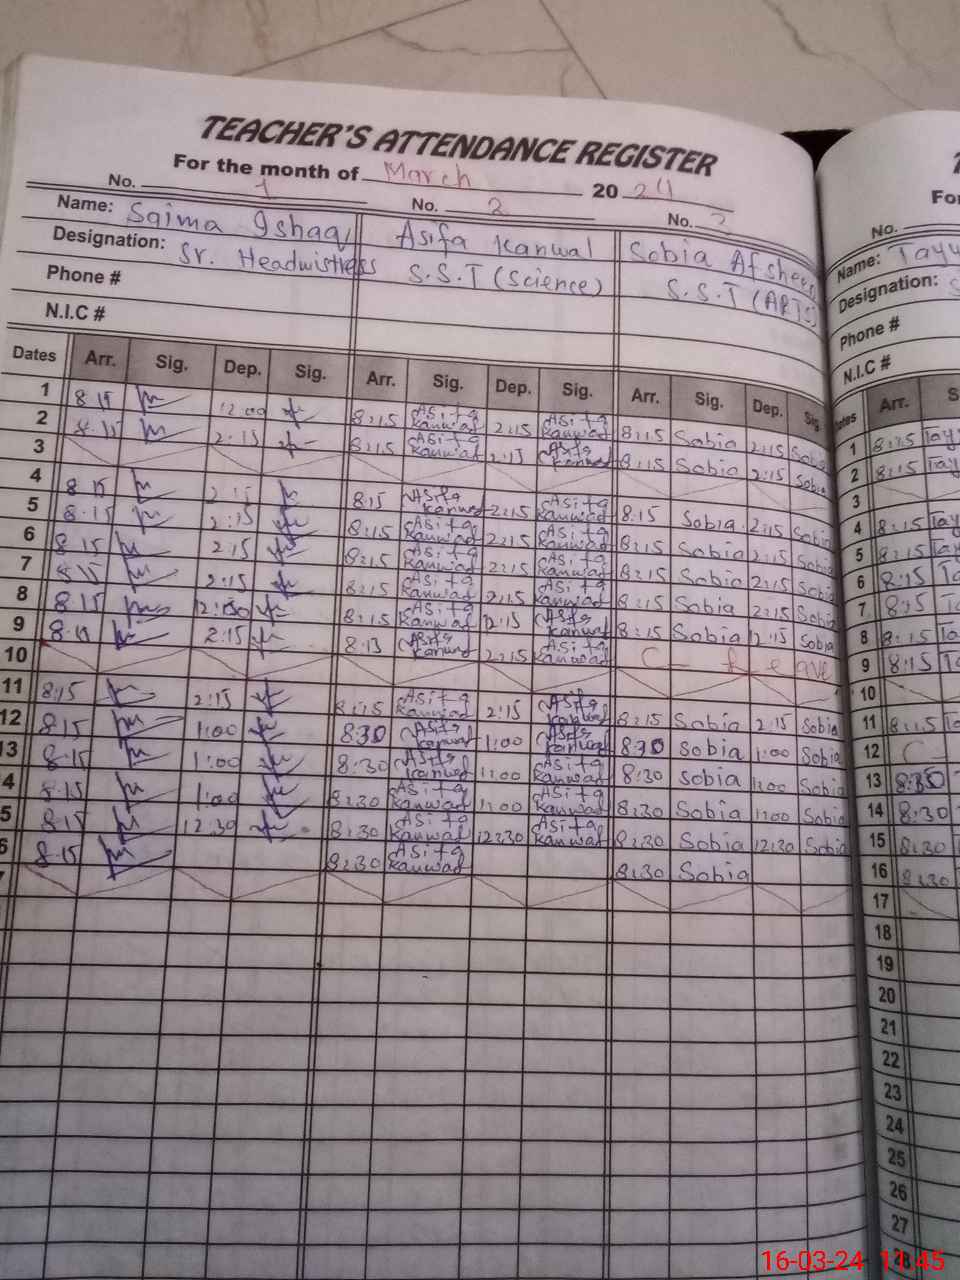 TEACHER'S ATTENDANCE REGISTER
For the month of March 2024
No. 1 No. 2 No. 3
Name: Saima Ishaq Asifa Kanwal Sobia Afsheen
Designation: Sr. Headmistress S.S.T (Science) S.S.T (ARTS)
Phone #
N.I.C #
Dates Arr. Sig. Dep. Sig. Arr. Sig. Dep. Sig. Arr. Sig. Dep. Sig
1 8:15 12:00 8:15 Asifa Kanwal 2:15 Asifa Kanwal 8:15 Sobia 2:15 Sobia
2 8:15 2:15 8:15 Asifa Kanwal 2:15 Asifa Kanwal 8:15 Sobia 2:15 Sobia
3
4 8:15 2:15 8:15 Asifa Kanwal 2:15 Asifa Kanwal 8:15 Sobia 2:15 Sobia
5 8:15 2:15 8:15 Asifa Kanwal 2:15 Asifa Kanwal 8:15 Sobia 2:15 Sobia
6 8:15 2:15 8:15 Asifa Kanwal 2:15 Asifa Kanwal 8:15 Sobia 2:15 Sobia
7 8:15 2:15 8:15 Asifa Kanwal 2:15 Asifa Kanwal 8:15 Sobia 2:15 Sobia
8 8:15 8:15 Asifa Kanwal 12:15 Asifa Kanwal 8:15 Sobia 12:15 Sobia
9 8:15 2:15 8:15 Asifa Kanwal 2:15 Asifa Kanwal C- leave
10
11 8:15 2:15 8:15 Asifa Kanwal 2:15 Asifa Kanwal 8:15 Sobia 2:15 Sobia
12 8:15 1:00 8:30 Asifa Kanwal 1:00 Asifa Kanwal 8:30 Sobia 1:00 Sobia
13 8:15 1:00 8:30 Asifa Kanwal 1:00 Asifa Kanwal 8:30 Sobia 1:00 Sobia
4 8:15 1:00 8:30 Asifa Kanwal 1:00 Asifa Kanwal 8:30 Sobia 1:00 Sobia
5 8:15 12:30 8:30 Asifa Kanwal 12:30 Asifa Kanwal 8:30 Sobia 12:30 Sobia
6 8:15 8:30 Asifa Kanwal 8:30 Sobia
7
For
No.
Name: Tayy
Designation: S
Phone #
N.I.C #
Dates Arr. S
1 8:15 Tay
2 8:15 Tay
3
4 8:15 Tay
5 8:15 Ta
6 8:15 Ta
7 8:15 Ta
8 8:15 Ta
9 8:15 Ta
10
11 8:15 T
12 C-
13 8:30
14 8:30
15 8:30
16 8:30
17
18
19
20
21
22
23
24
25
26
27
16-03-24 11:45